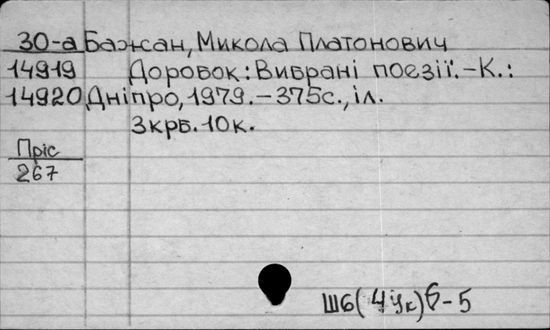 30-а Бажан, Микола Платонович
14919 Доробок: Вибрані поезії. - К.:
14920 Дніпро, 1979. - 375с., іл.
3крб. 10к.
Пріс
267
Ш6(4Ук)6-5